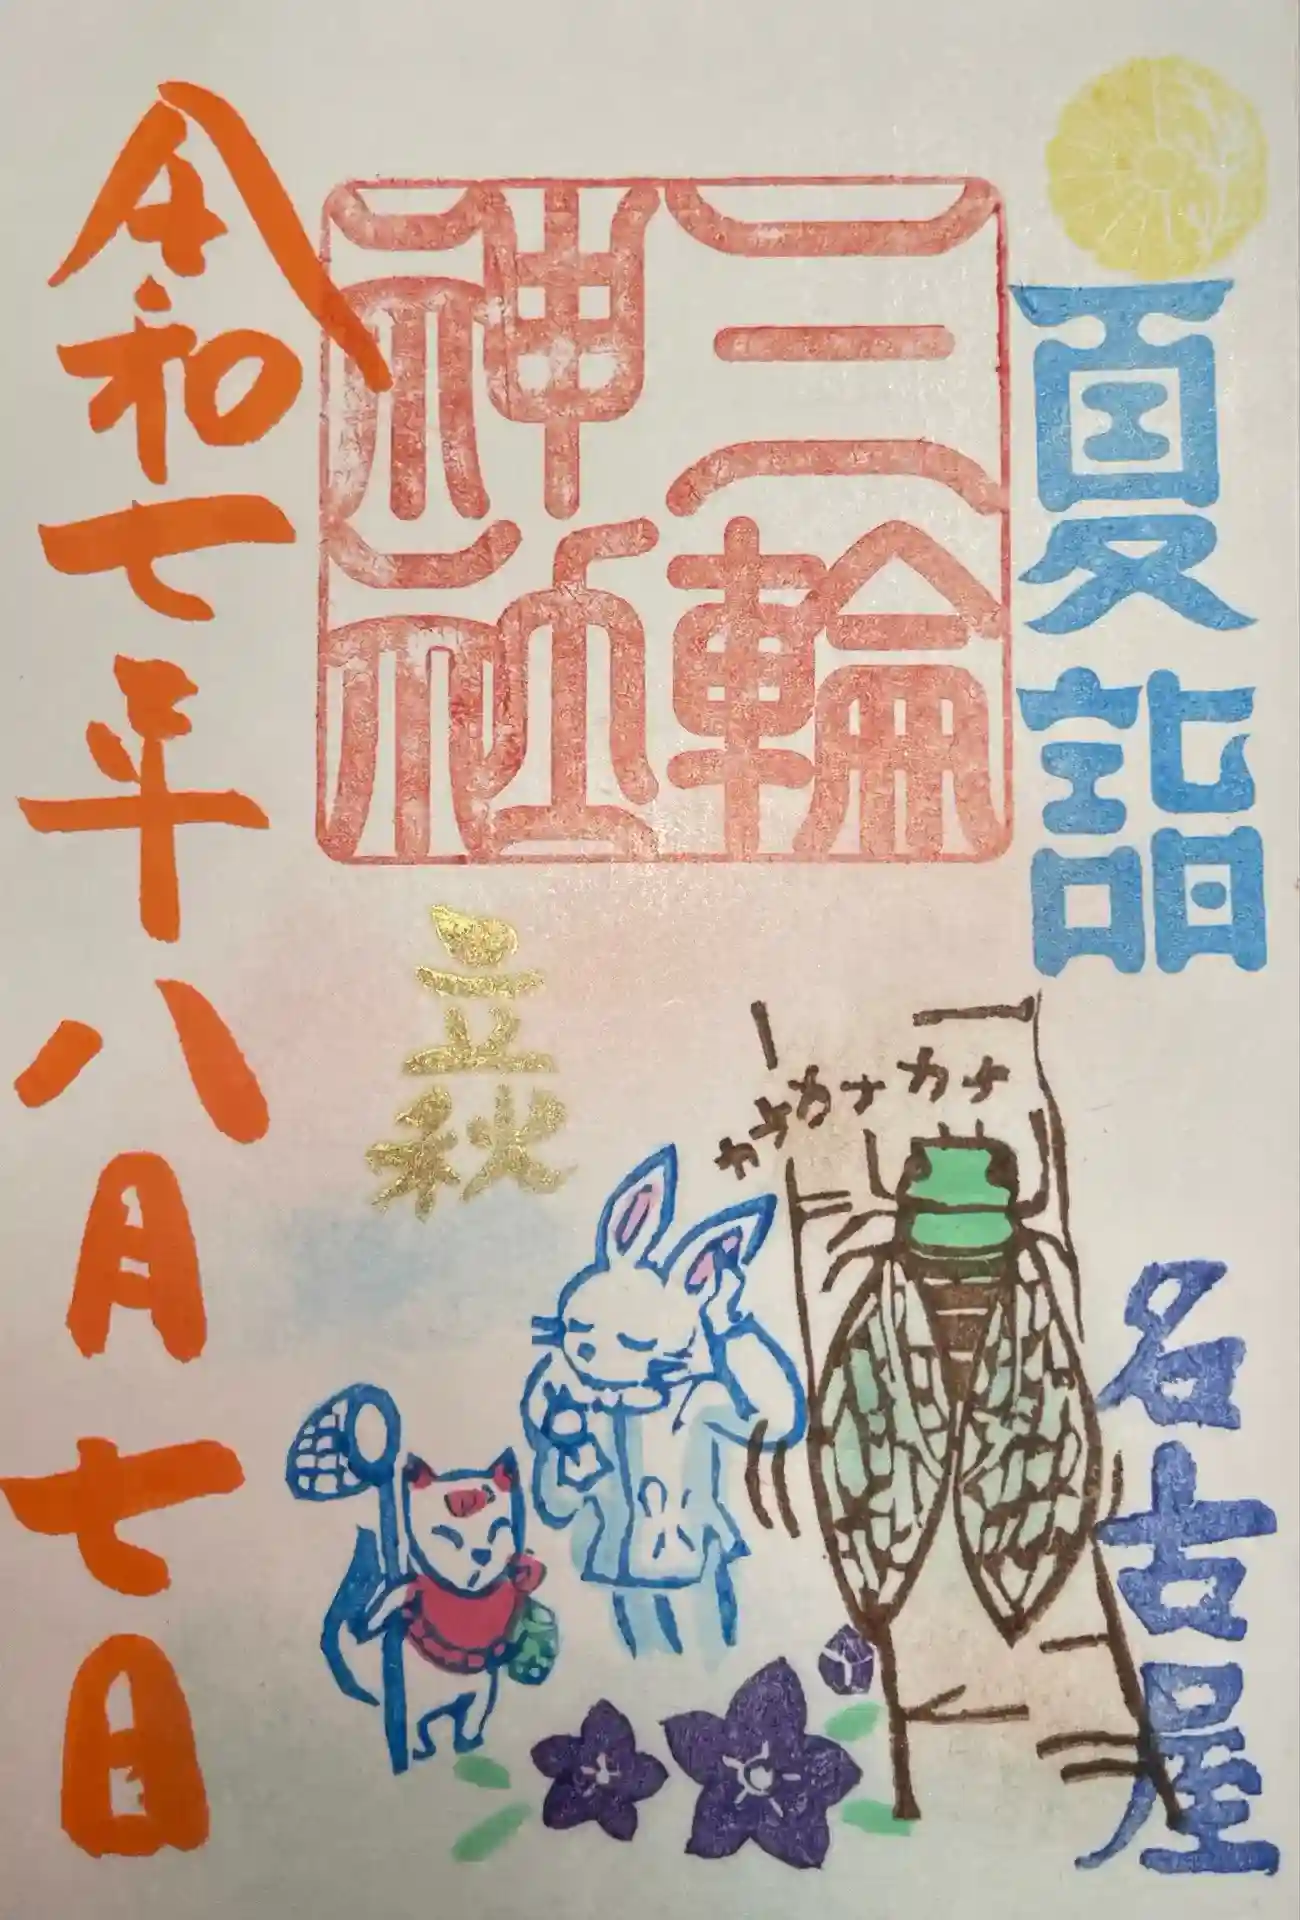 夏詣
名古屋
三輪
神社
カナカナカナ
立秋
令和七年八月七日